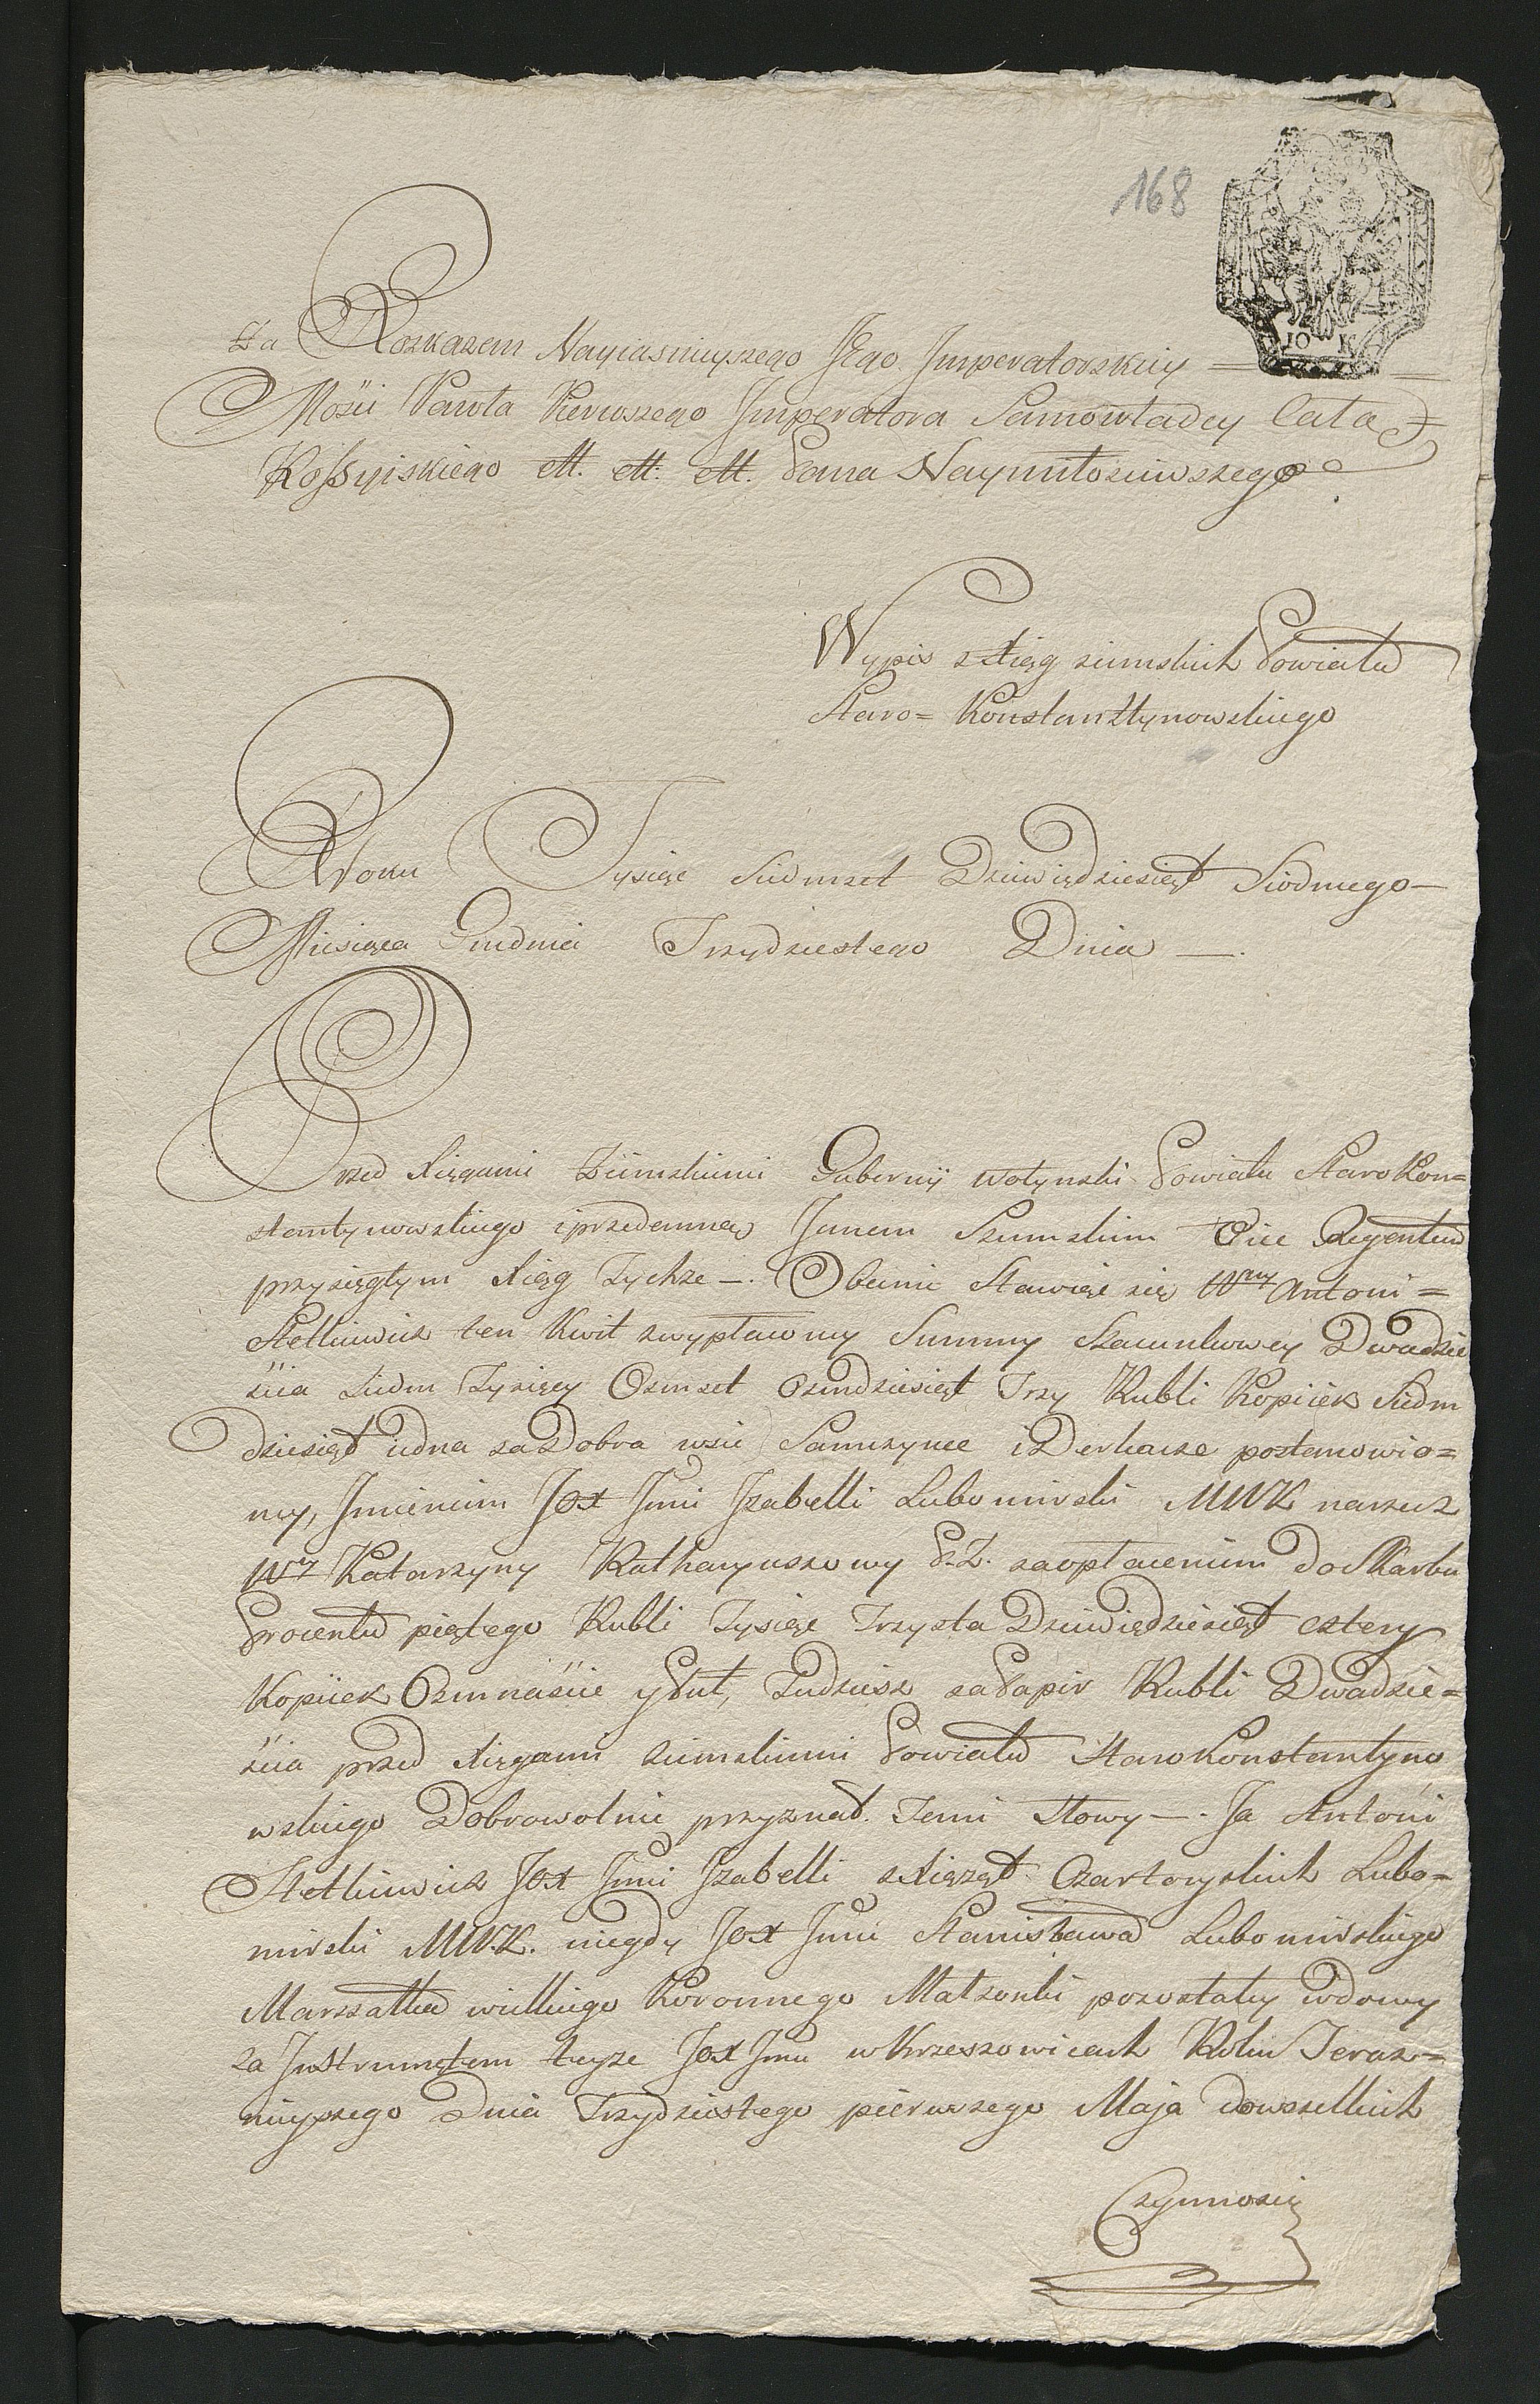 168
10 K
Za Rozkazem Nayiasnieyszego JEgo Imperatorskiey =
Mości Pawła Pierwszego Imperatora Samowładcy Cała
Rossyiskiego ett. ett. ett. Pana Naymiłosciwszego
Wypis z Xiąg ziemskich Powiatu
Staro= Konstantynowskiego
Roku Tysiąc Siedmset Dziewiędziesiąt Siodmego—
Miesiąca Grudnia Trzydziestego Dnia —.
Przed Xięgami Ziemskiemi Gubernij wołynski Powiatu Staro Kon=
stantynowskiego i przedemną Janem Szumskim Vice Regentem
przysięgłym Xiąg Tychże —. Obecnie Stawiąc się Wny Antoni =
Stetkiewicz ten Kwit zwypłaconey Summy Szacunkowey Dwadzie
scia Siedm Tysięcy Osmset Osmdziesiąt Trzy Rubli Kopiiek Siedm
dziesiąt iedna za Dobra wsie Samczynce i Derkacze postanowio=
ney, Imieniem JOX Jmci Izabelli Lubomirski MWK narzecz
Wey Katarzyny Rutharyuszowy P. Z. zaopłaceniem do Skarbu
Procentu piątego Rubli Tysiąc Trzysta Dziewiędziesiąt cztery
Kopiiek Osmnaście y Puł, Tudziesz za Papir Rubli Dwadzie=
ścia przed Xięgami ziemskiemi Powiatu Staro Konstantyno
wskiego Dobrowolnie przyznał. Temi Słowy —. Ja Antoni
Stetkiewicz JOX Jmci Izabelli z Xiążąt Czartoryskich Lubo=
mirski MW.K. niegdy JOX Jmci Stanisława Lubomirskiego
Marszałka wielkiego Koronnego Małżonki pozostałey wdowy
za Instrumętem teyże JOX Jmci w Krzeszowicach Roku Teraz=
nieyszego Dnia Trzydziestego pierwszego Maja dowszelkich
Czynnosci